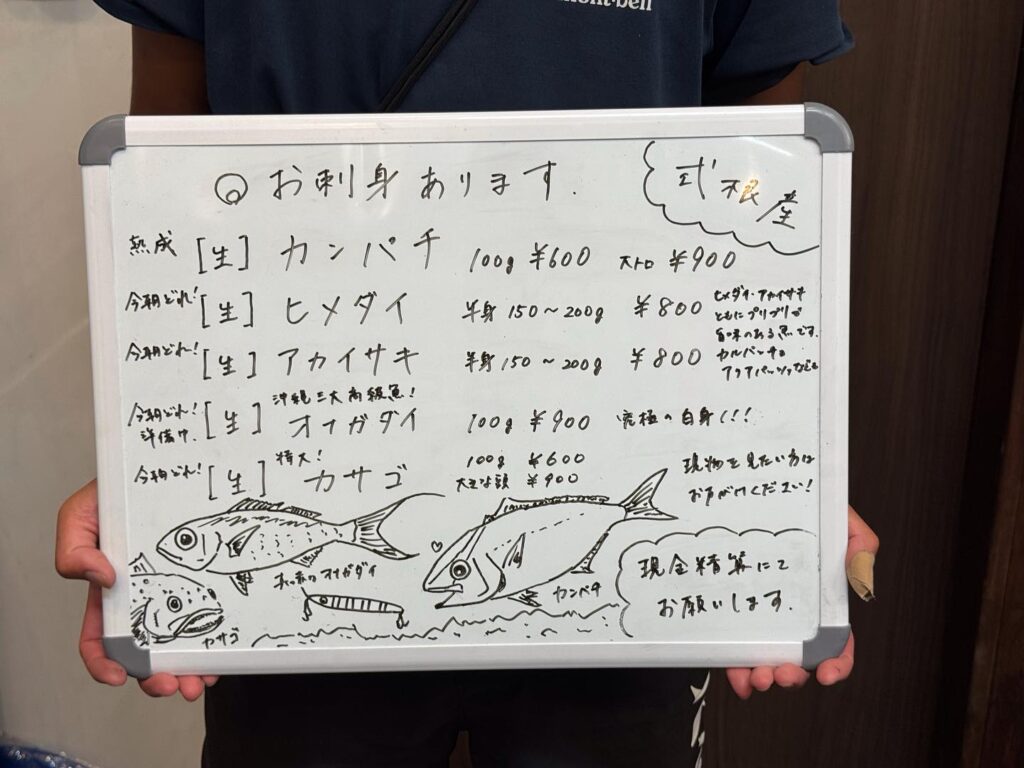 mont-bell
お刺身あります.
式根産
熟成 [生] カンパチ 100g ¥600 大トロ ¥900
今朝どれ! [生] ヒメダイ 半身 150~200g ¥800
今朝どれ! [生] アカイサキ 半身 150~200g ¥800
ヒメダイ・アカイサキ
ともにプリプリで
旨味のある魚です.
カルパッチョ
アクアパッツァなども
沖縄三大高級魚!
今朝どれ! [生] オナガダイ 100g ¥900 究極の白身!!!
特大!
今朝どれ! [生] カサゴ 100g ¥600
大きな頭 ¥900
現物を見たい方は
お声がけください!
オナガダイ
カンパチ
カサゴ
現金精算にて
お願いします.